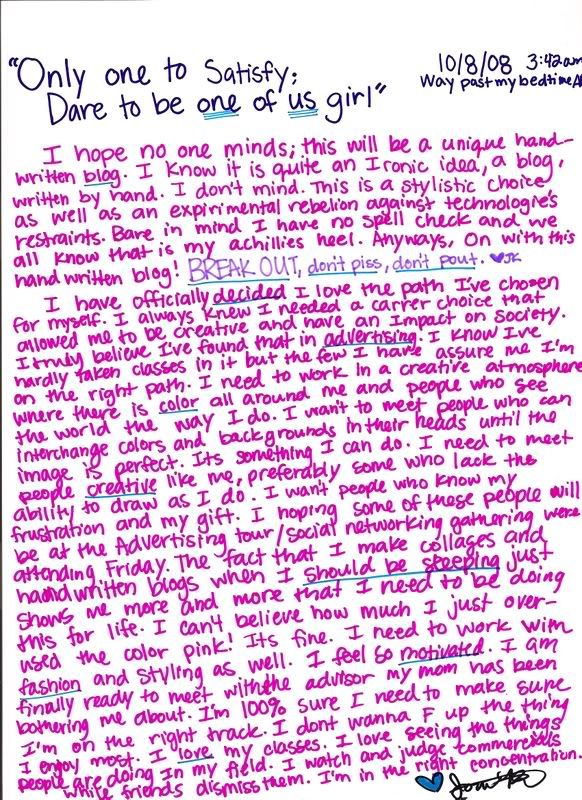 "Only one to Satisfy;
Dare to be one of us girl"
10/8/08 3:42am
Way past my bedtime
I hope no one minds; this will be a unique hand-
written blog. I know it is quite an Ironic idea, a blog,
written by hand. I don't mind. This is a stylistic choice
as well as an expirimental rebelion against technologies
restraints. Bare in mind I have no spell check and we
all know that is my achillies heel. Anyways, On with this
hand written blog! BREAK OUT, don't piss, don't pout. ♥JK
I have officially decided I love the path I've chosen
for myself. I always knew I needed a carrer choice that
allowed me to be creative and have an impact on society.
I truly believe I've found that in advertising. I know I've
hardly taken classes in it but the few I have assure me I'm
on the right path. I need to work in a creative atmosphere
where there is color all around me and people who see
the world the way I do. I want to meet people who can
interchange colors and backgrounds in their heads until the
image is perfect. Its something I can do. I need to meet
people creative like me, preferably some who lack the
ability to draw as I do. I want people who know my
frustration and my gift. I hoping some of these people will
be at the Advertising tour/social networking gathering were
attending Friday. The fact that I make collages and
handwritten blogs when I should be sleeping just
shows me more and more that I need to be doing
this for life. I can't believe how much I just over-
used the color pink! Its fine. I need to work with
fashion and styling as well. I feel so motivated. I am
finally ready to meet with the advisor my mom has been
bothering me about. I'm 100% sure I need to make sure
I'm on the right track. I dont wanna F up the thing
I enjoy most. I love my classes. I love seeing the things
people are doing in my field. I watch and judge commercials
while friends dismiss them. I'm in the right concentration.